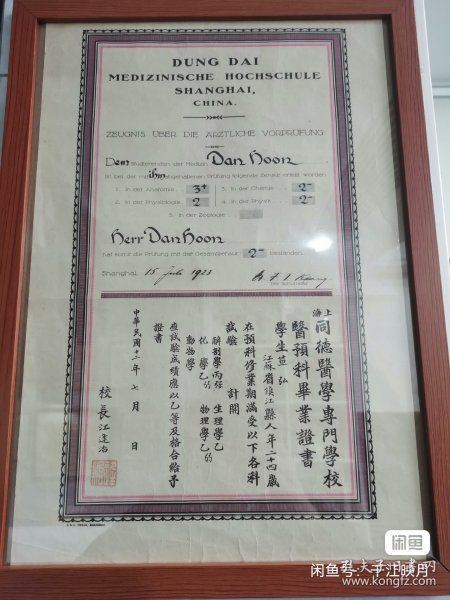 DUNG DAI
MEDIZINISCHE HOCHSCHULE
SHANGHAI,
CHINA.
ZEUGNIS ÜBER DIE ÄRZTLICHE VORPRÜFUNG
Dem Studierenden der Medizin Dan Hoon
ist bei der mit ihm abgehaltenen Prüfung folgende Zensur erteilt worden
1. In der Anatomie 3+ 3. In der Chemie 2-
2. In der Physiologie 2 4. In der Physik 2-
5. In der Zoologie
Herr Dan Hoon
hat somit die Prüfung mit der Gesamtzensur 2- bestanden.
Shanghai, 15 Juli 1923
上海同德醫學專門學校
醫預科畢業證書
學生 弘
江蘇省鎮江縣人年二十四歲
在預科修業期滿受以下各科
試驗 計開
解剖學丙 生理學乙
化學乙 物理學乙
動物學
應試驗成績應以乙等及格合給予
證書
中華民國十二年七月 日
校長江逢治
闲鱼
闲鱼号:千江映月
www.kongfz.com